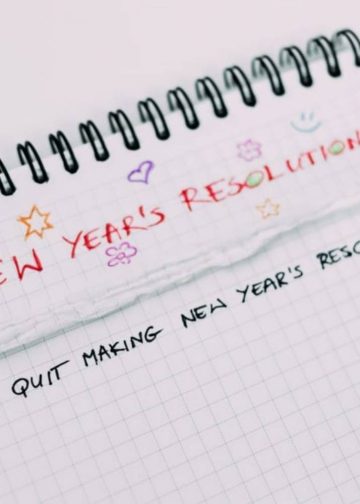 EW YEAR'S RESOLUTION
QUIT MAKING NEW YEAR'S RESO